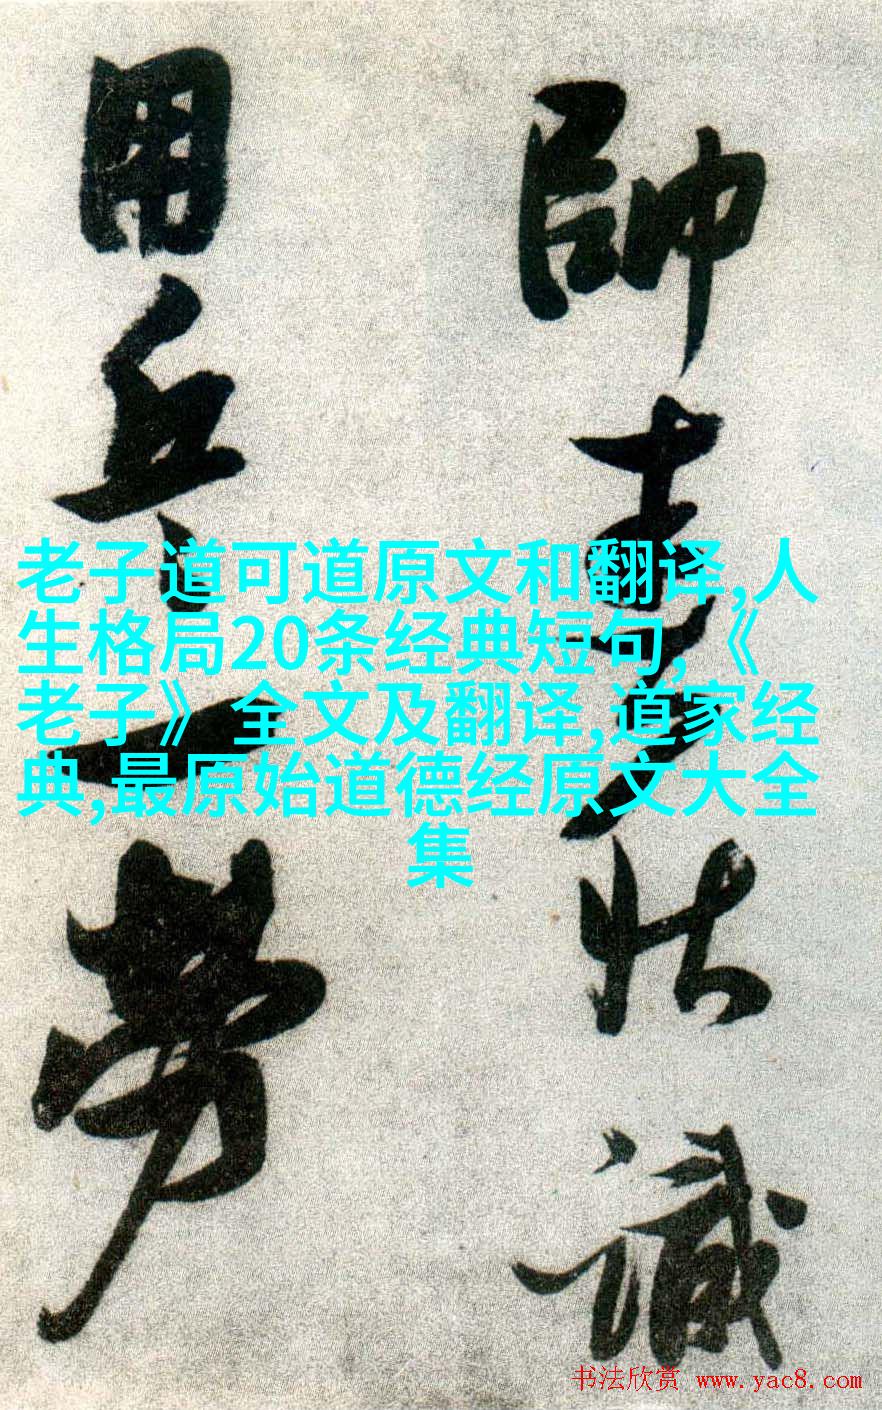 帥壯識
用兵一勞
老子道可道原文和翻译,人
生格局20条经典短句,《
老子》全文及翻译,道家经
典,最原始道德经原文大全
集
书法欣赏 www.yac8.com